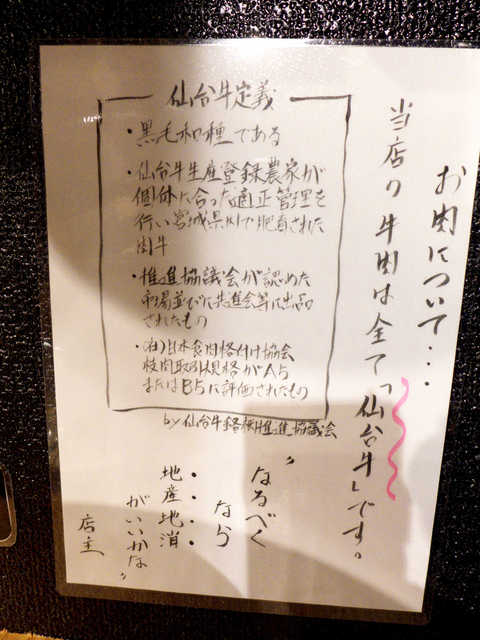 お肉について・・・
当店の牛肉は全て「仙台牛」です。
仙台牛定義
・黒毛和種である
・仙台牛生産登録農家が
個体に合った適正管理を
行い宮城県内で肥育された
肉牛
・推進協議会が認めた
市場並びに共進会等に出品
されたもの
・(社)日本食肉格付け協会
枝肉取引規格がA5
またはB5に評価されたもの
by 仙台牛銘柄推進協議会
"なるべく
なら
地産地消
がいいかな"
店主